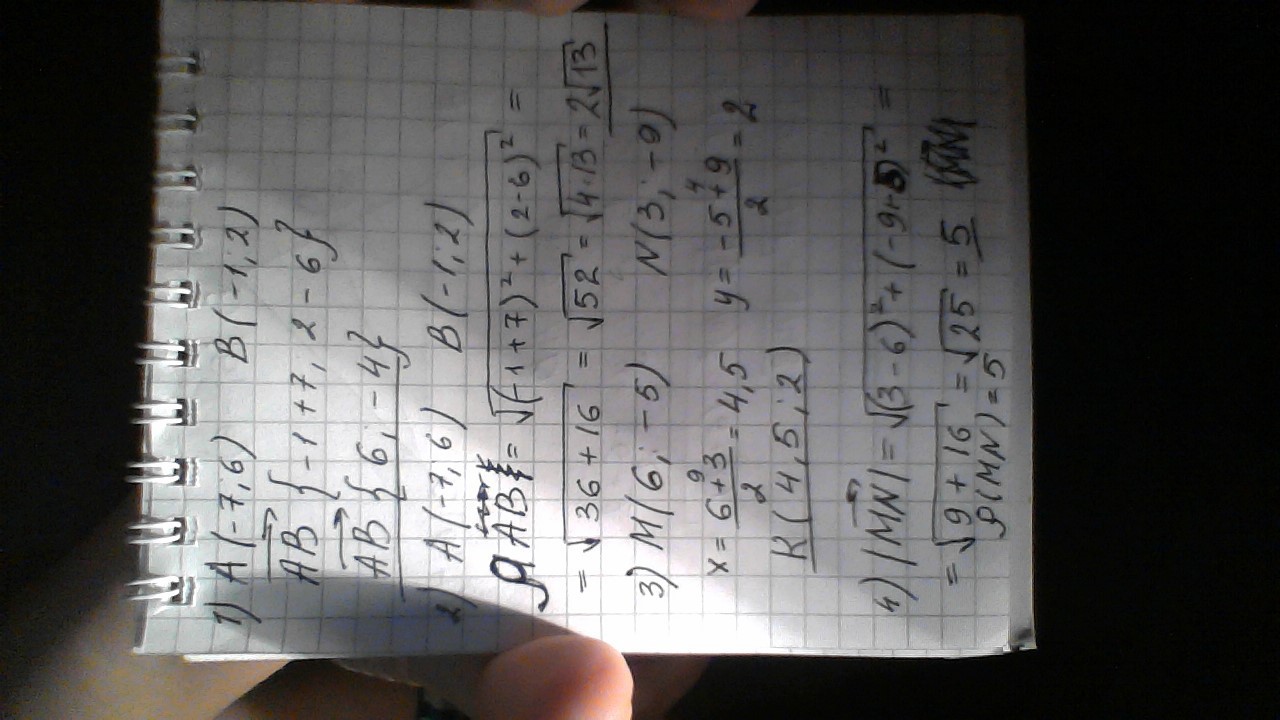 1) A(-7;6) B(-1;2)
AB {-1+7, 2-6}
AB {6; -4}
2) A(-7;6) B(-1;2)
ρAB = √(-1+7)²+(2-6)² =
= √36+16 = √52 = √4·13 = 2√13
3) M(6;-5) N(3;-9)
x = 6+3/2 = 4,5 y = -5+9/2 = 2
9 4
K(4,5;2)
4) |MN| = √(3-6)²+(-9+5)² =
= √9+16 = √25 = 5
ρ(MN)=5